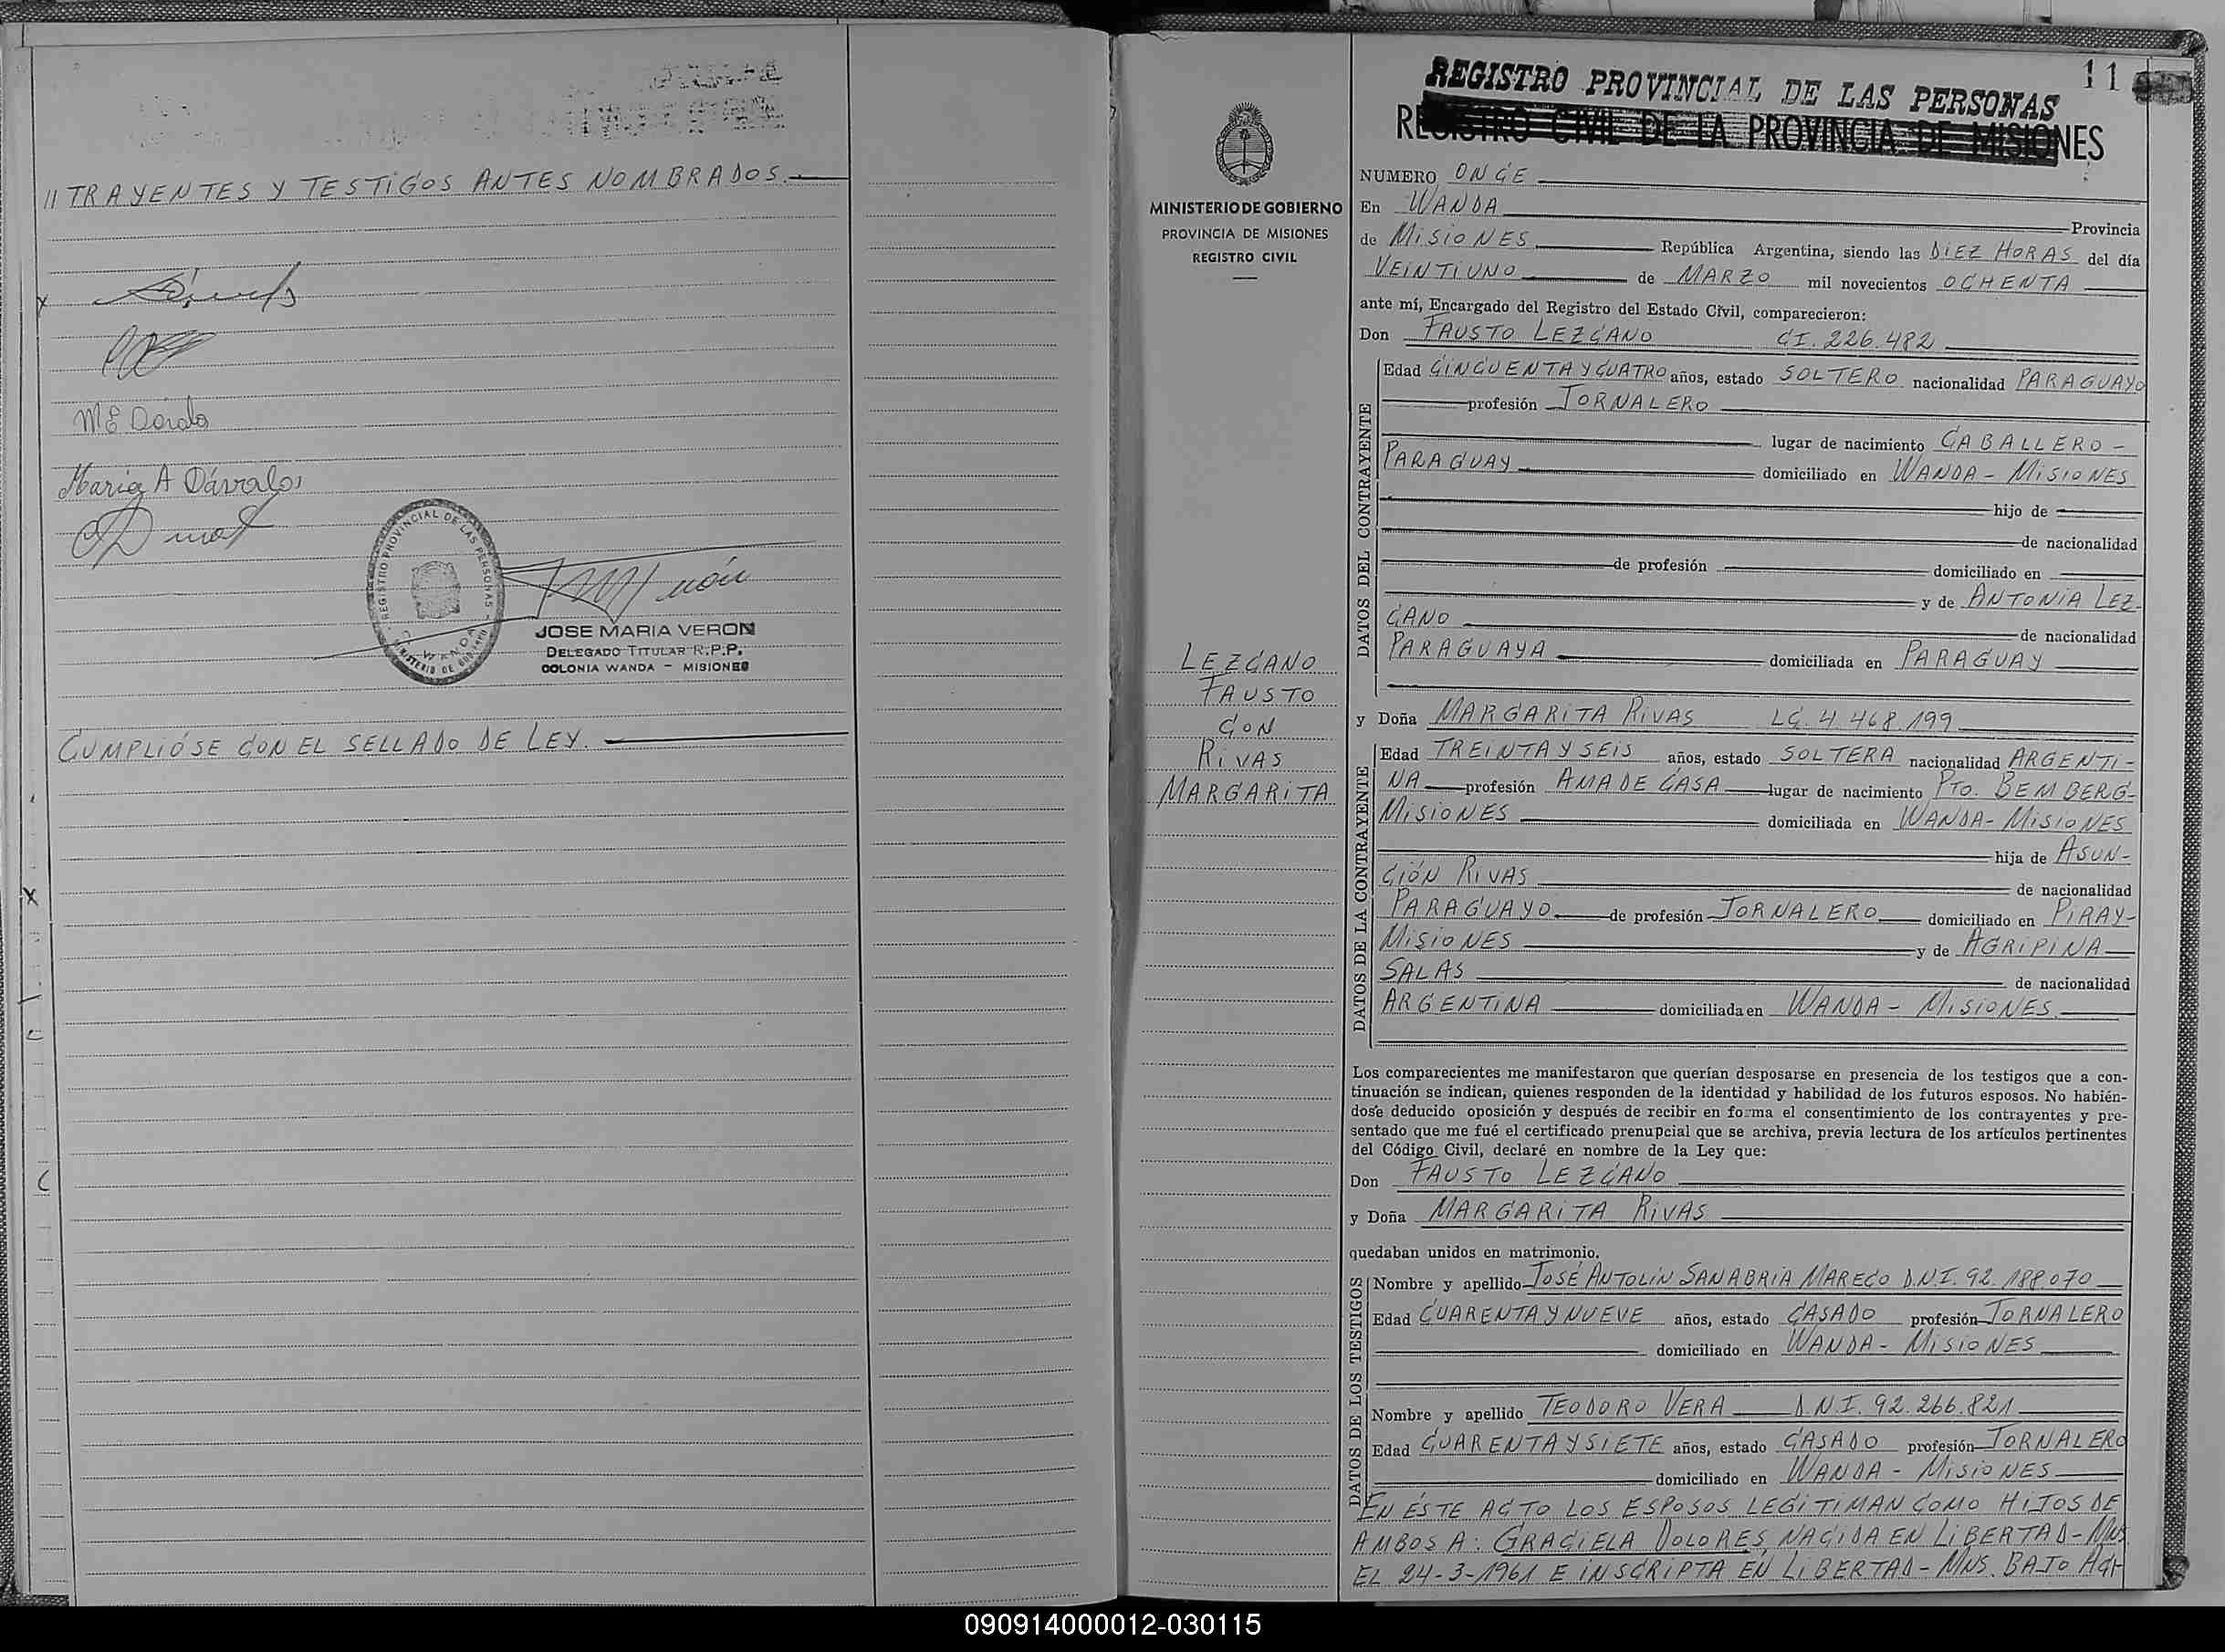 // TRAYENTES Y TESTIGOS ANTES NOMBRADOS.
Maria A Dávalos
REGISTRO PROVINCIAL DE LAS PERSONAS
WANDA
MINISTERIO DE GOBIERNO
JOSE MARIA VERON
DELEGADO TITULAR R.P.P.
COLONIA WANDA - MISIONES
CUMPLIÓSE CON EL SELLADO DE LEY.
MINISTERIO DE GOBIERNO
PROVINCIA DE MISIONES
REGISTRO CIVIL
LEZCANO
FAUSTO
CON
RIVAS
MARGARITA
11
REGISTRO PROVINCIAL DE LAS PERSONAS
REGISTRO CIVIL DE LA PROVINCIA DE MISIONES
NUMERO ONCE
En WANDA Provincia
de MISIONES República Argentina, siendo las DIEZ HORAS del día
VEINTIUNO de MARZO mil novecientos OCHENTA
ante mí, Encargado del Registro del Estado Civil, comparecieron:
Don FAUSTO LEZCANO CI. 226.482
DATOS DEL CONTRAYENTE
Edad CINCUENTA Y CUATRO años, estado SOLTERO nacionalidad PARAGUAYO
profesión JORNALERO
lugar de nacimiento CABALLERO -
PARAGUAY domiciliado en WANDA - MISIONES
hijo de
de nacionalidad
de profesión domiciliado en
y de ANTONIA LEZ-
CANO de nacionalidad
PARAGUAYA domiciliada en PARAGUAY
y Doña MARGARITA RIVAS LC. 4.468.199
DATOS DE LA CONTRAYENTE
Edad TREINTA Y SEIS años, estado SOLTERA nacionalidad ARGENTI-
NA profesión AMA DE CASA lugar de nacimiento PTO. BEMBERG-
MISIONES domiciliada en WANDA - MISIONES
hija de ASUN-
CIÓN RIVAS de nacionalidad
PARAGUAYO de profesión JORNALERO domiciliado en PIRAY-
MISIONES y de AGRIPINA
SALAS de nacionalidad
ARGENTINA domiciliada en WANDA - MISIONES.
Los comparecientes me manifestaron que querían desposarse en presencia de los testigos que a con-
tinuación se indican, quienes responden de la identidad y habilidad de los futuros esposos. No habién-
dose deducido oposición y después de recibir en forma el consentimiento de los contrayentes y pre-
sentado que me fué el certificado prenupcial que se archiva, previa lectura de los artículos pertinentes
del Código Civil, declaré en nombre de la Ley que:
Don FAUSTO LEZCANO
y Doña MARGARITA RIVAS
quedaban unidos en matrimonio.
DATOS DE LOS TESTIGOS
Nombre y apellido JOSÉ ANTOLIN SANABRIA MARECO D.N.I. 92.188.070
Edad CUARENTA Y NUEVE años, estado CASADO profesión JORNALERO
domiciliado en WANDA - MISIONES
Nombre y apellido TEODORO VERA D.N.I. 92.266.821
Edad CUARENTA Y SIETE años, estado CASADO profesión JORNALERO
domiciliado en WANDA - MISIONES
EN ÉSTE ACTO LOS ESPOSOS LEGITIMAN COMO HIJOS DE
AMBOS A: GRACIELA DOLORES, NACIDA EN LIBERTAD - MNS.
EL 24-3-1961 E INSCRIPTA EN LIBERTAD - MNS. BAJO ACT-
090914000012-030115